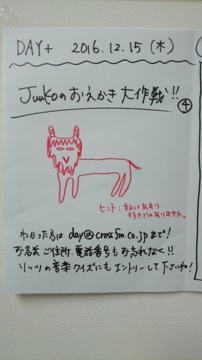 DAY+ 2016.12.15 (木)
Junkoのおえかき大作戦!!
④
ヒント: 私はあまり
好きではありません。
わかった方は day@crossfm.co.jpまで!
お名前 ご住所 電話番号もお忘れなく!!
リッツの音楽クイズにもエントリーして下さいね!